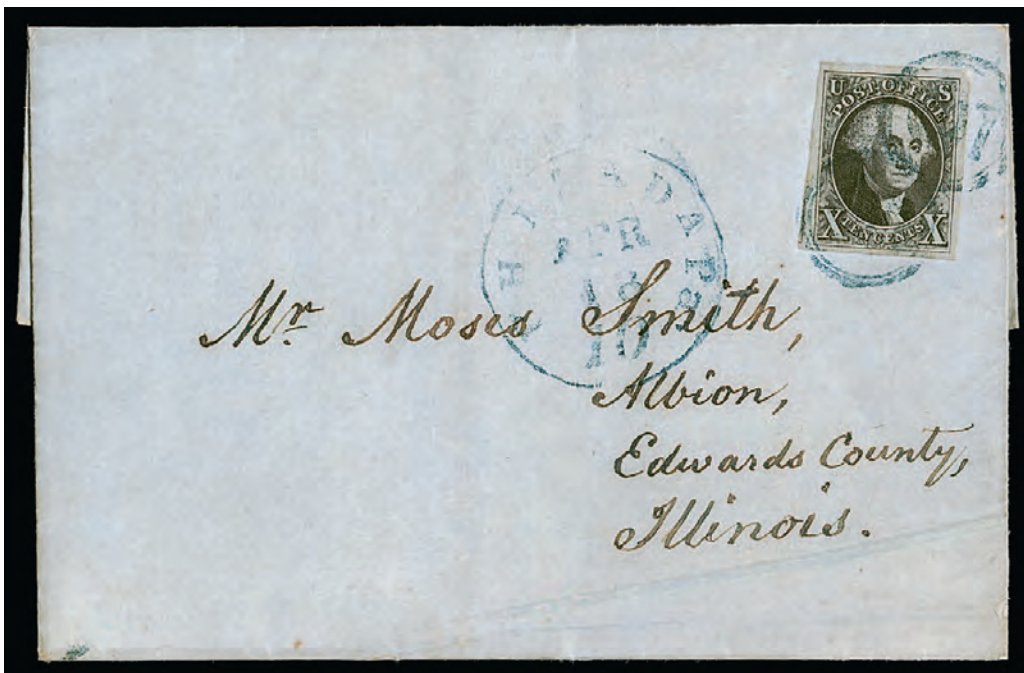 U S
POST OFFICE
X TEN CENTS X
APR
18
10
Mr. Moses Smith,
Albion,
Edwards County,
Illinois.